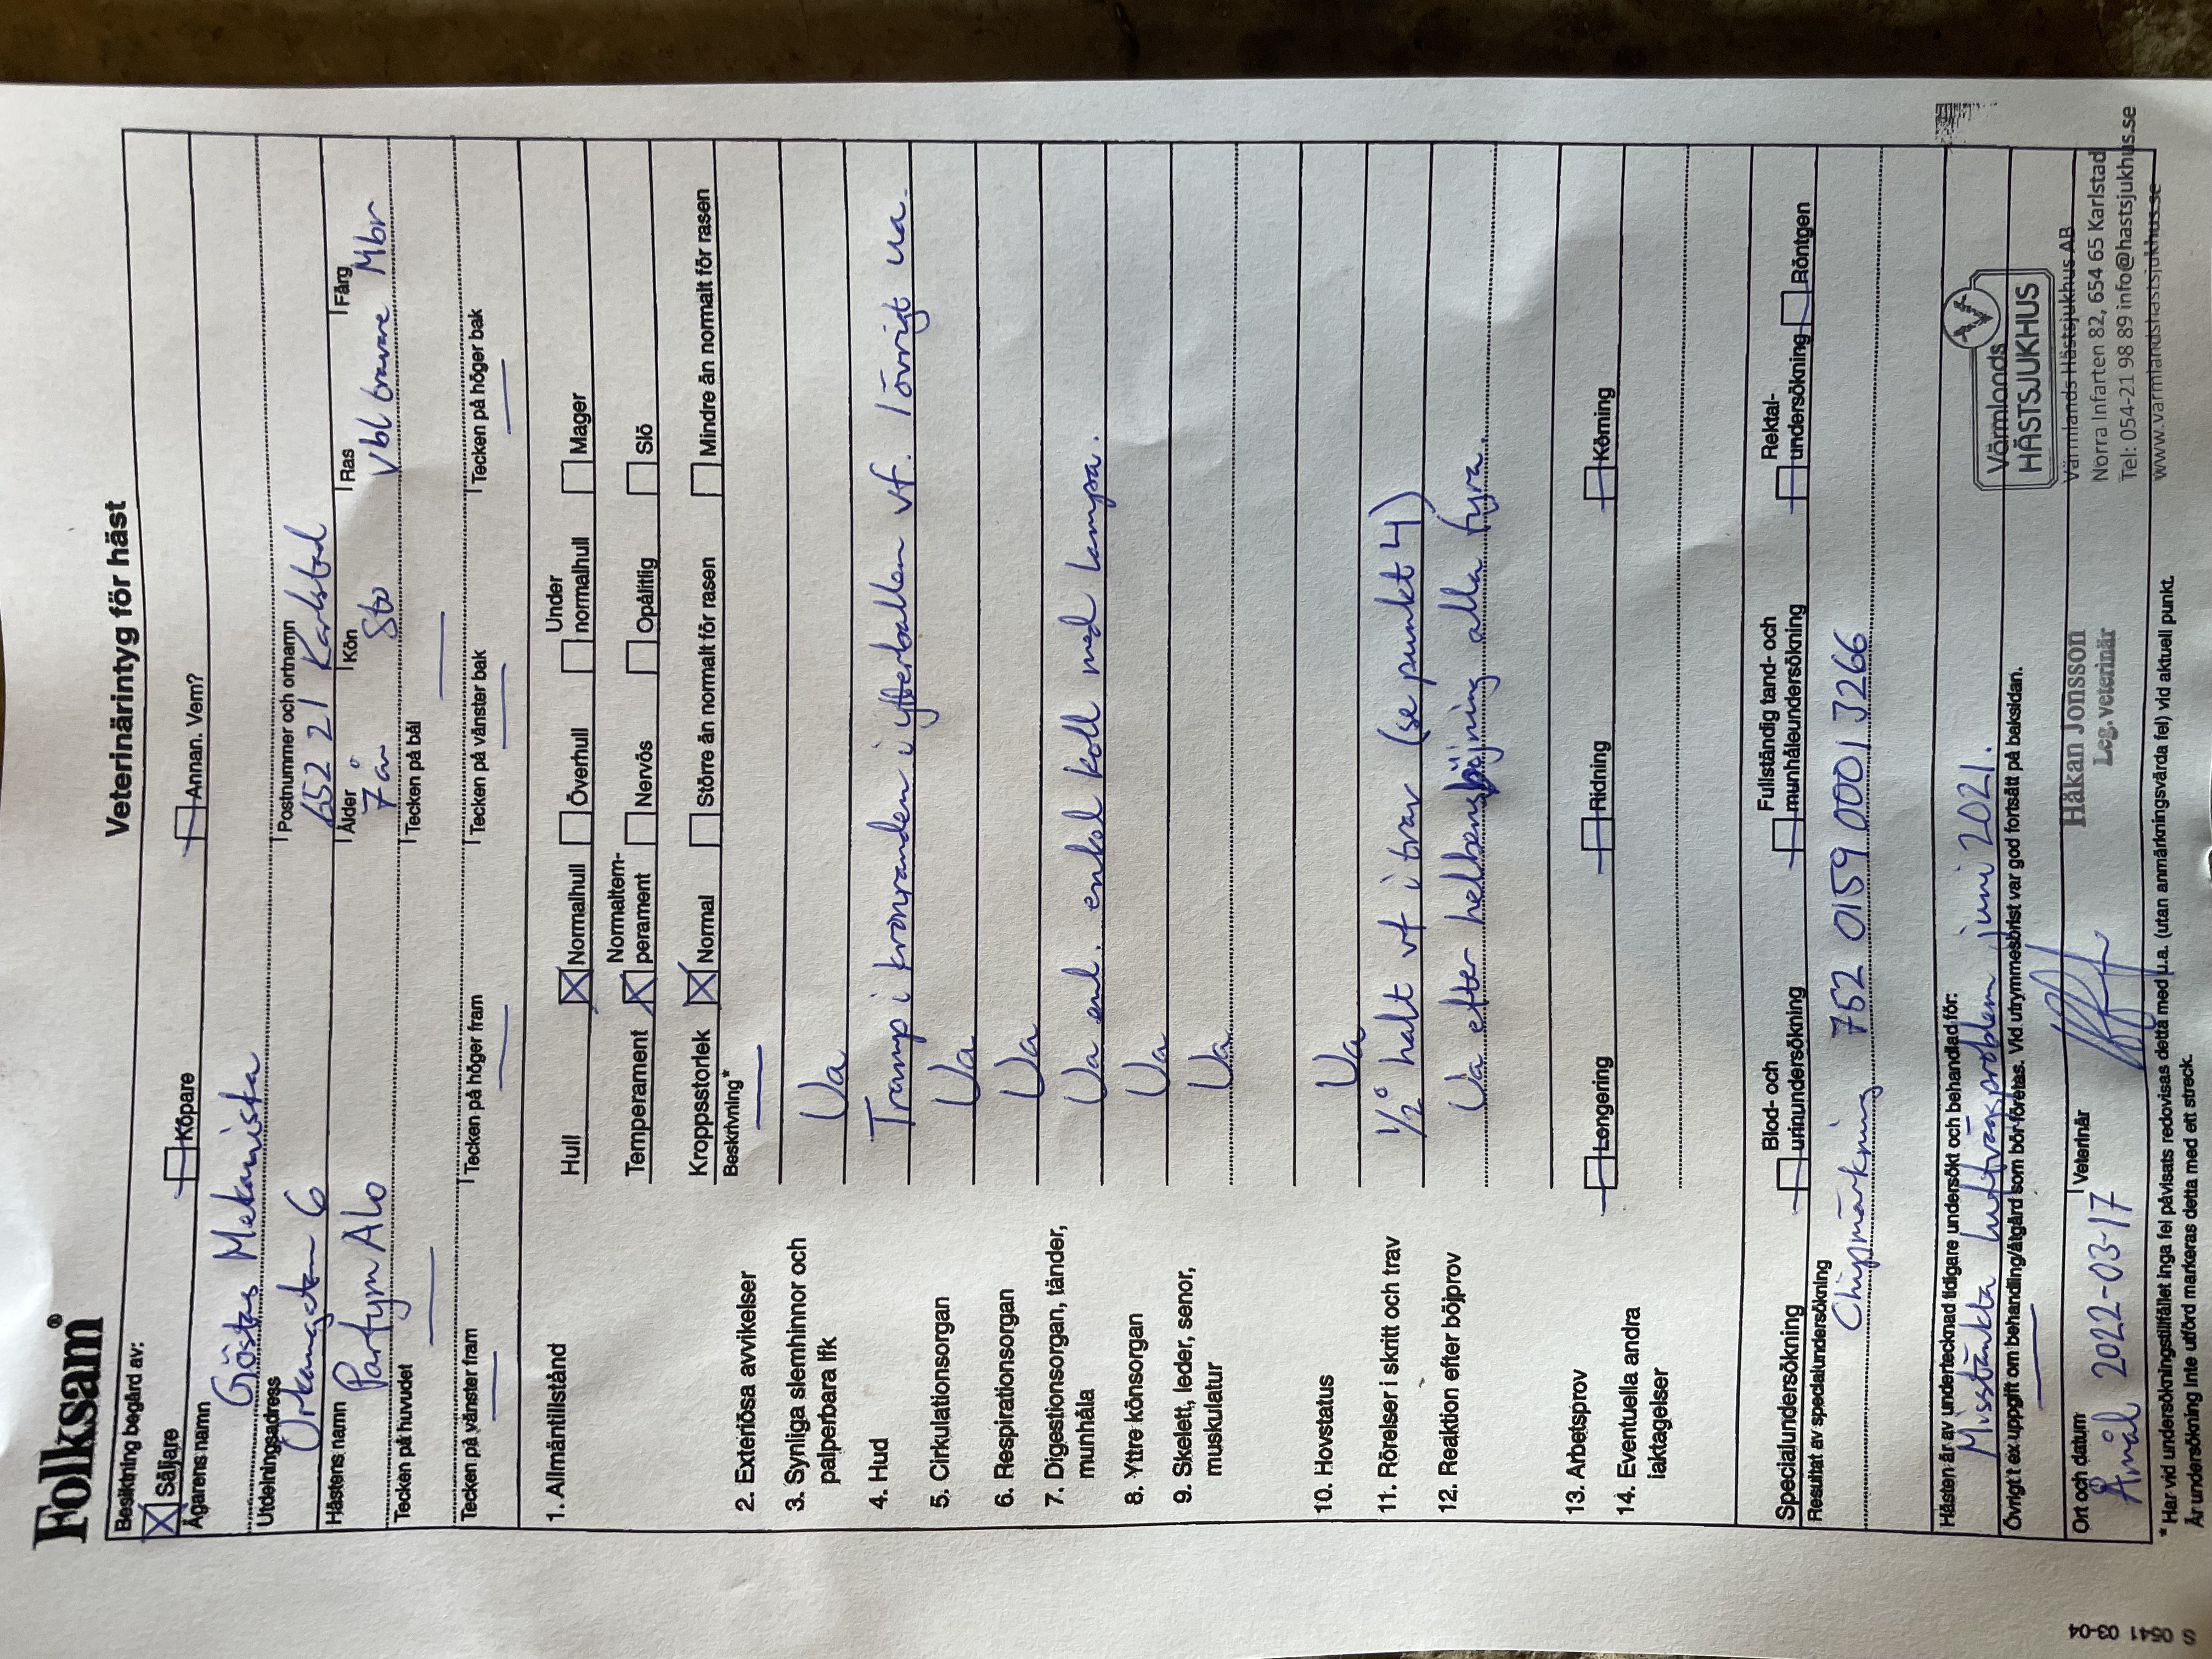 Folksam®
Veterinärintyg för häst
Besiktning begärd av:
Säljare Köpare Annan. Vem?
Ägarens namn
Göstas Mekaniska
Utdelningsadress Postnummer och ortnamn
Orkangatan 6 652 21 Karlstad
Hästens namn Ålder Kön Ras Färg
Partyn Alo 7 år Sto Vbl travare Mbr
Tecken på huvudet Tecken på bål
Tecken på vänster fram Tecken på höger fram Tecken på vänster bak Tecken på höger bak
1. Allmäntillstånd Hull Normalhull Överhull Under normalhull Mager
Temperament Normaltemperament Nervös Opålitlig Slö
Kroppsstorlek Normal Större än normalt för rasen Mindre än normalt för rasen
Beskrivning*
2. Exteriösa avvikelser
3. Synliga slemhinnor och
palperbara lfk Ua
4. Hud Tramp i kronranden i ytterballen vf. I övrigt ua.
5. Cirkulationsorgan Ua
6. Respirationsorgan Ua
7. Digestionsorgan, tänder,
munhåla Ua enl. enkel koll med lampa.
8. Yttre könsorgan Ua
9. Skelett, leder, senor,
muskulatur Ua
10. Hovstatus Ua
11. Rörelser i skritt och trav 1/2° halt vf i trav (se punkt 4)
12. Reaktion efter böjprov Ua efter helbensböjning alla fyra.
13. Arbetsprov Longering Ridning Körning
14. Eventuella andra
iakttagelser
Specialundersökning Blod- och urinundersökning Fullständig tand- och munhåleundersökning Rektalundersökning Röntgen
Resultat av specialundersökning
Chipmärkning 752 0159 0001 3266
Hästen är av undertecknad tidigare undersökt och behandlad för:
Misstänkta luftvägsproblem juni 2021.
Övrigt t ex uppgift om behandling/åtgärd som bör företas. Vid utrymmesbrist var god fortsätt på baksidan.
Ort och datum Veterinär
Åmål 2022-03-17
Håkan Jonsson
Leg. veterinär
Värmlands
HÄSTSJUKHUS
Värmlands Hästsjukhus AB
Norra Infarten 82, 654 65 Karlstad
Tel: 054-21 98 89 info@hastsjukhus.se
www.varmlandshastsjukhus.se
* Har vid undersökningstillfället inga fel påvisats redovisas detta med u.a. (utan anmärkningsvärda fel) vid aktuell punkt.
Är undersökning inte utförd markeras detta med ett streck.
S 0541 03-04